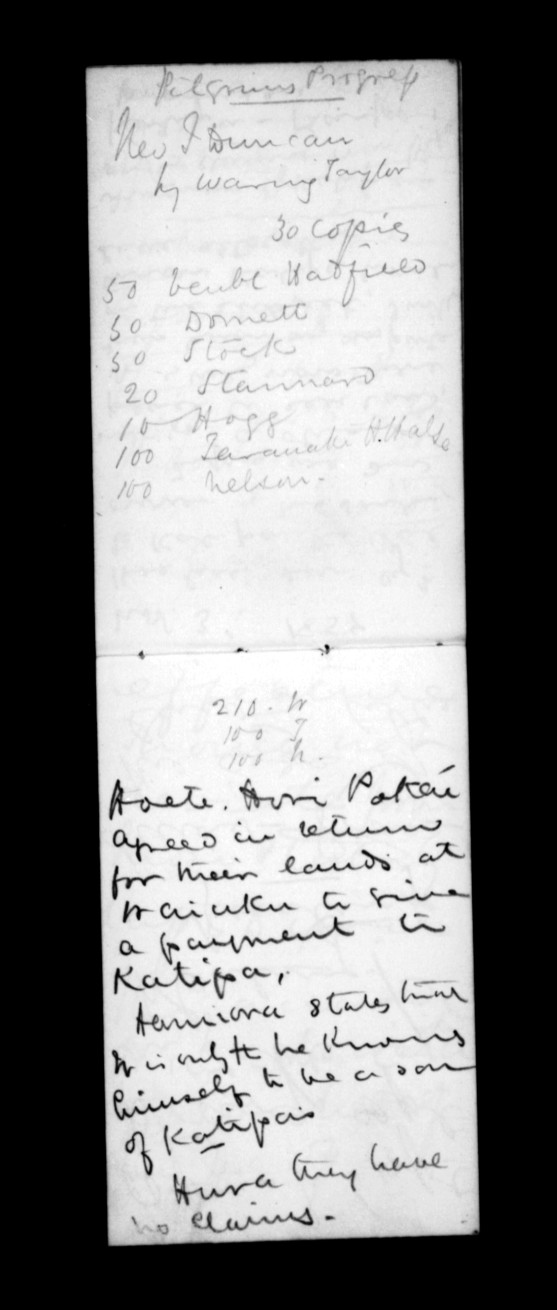 Pilgrims Progress
Rev J Duncan
by Waring Taylor
30 Copies
50 Venble Hadfield
50 Domett
50 Stock
20 Stannard
10 Hogg
100 Taranaki H. Halse
100 Nelson.
210. W
100 T
100 N.
Hoete. Hori
agreed in return
for their lands at
Waiuku to give
a payment to
Katipa,
Hamiora states that
he knows
himself to be a son
of Katipas
Hura they have
no claims.